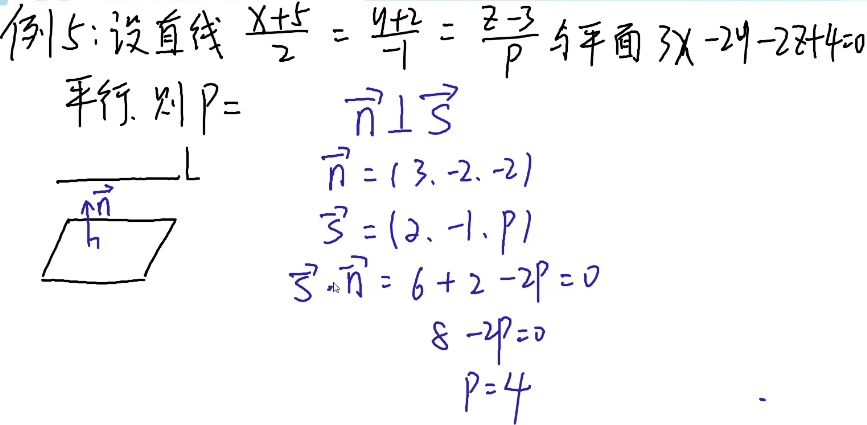 例5:设直线 \frac{x+5}{2} = \frac{y+2}{-1} = \frac{z-3}{p} 与平面 3x-2y-2z+4=0
平行.则P=
\vec{n}⊥\vec{s}
L
\vec{n}
\vec{n}=(3.-2.-2)
\vec{s}=(2.-1.P)
\vec{s}·\vec{n}=6+2-2P=0
8-2P=0
P=4